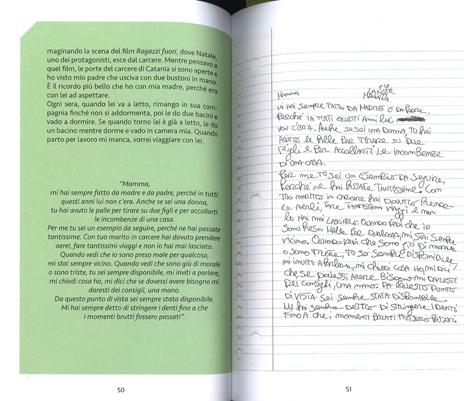 maginando la scena del film Ragazzi fuori, dove Natale,
uno dei protagonisti, esce dal carcere. Mentre pensavo a
quel film, le porte del carcere di Catania si sono aperte e
ho visto mio padre che usciva con due bustoni in mano.
È il ricordo più bello che ho con mia madre, perché ero
con lei ad aspettare.
Ogni sera, quando lei va a letto, rimango in sua com-
pagnia finché non si addormenta, poi le do due bacini e
vado a dormire. Se quando torno lei è già a letto, le do
un bacino mentre dorme e vado in camera mia. Quando
parto per lavoro mi manca, vorrei viaggiare con lei.
"Mamma,
mi hai sempre fatto da madre e da padre, perché in tutti
questi anni lui non c'era. Anche se sei una donna,
tu hai avuto le palle per tirare su due figli e per accollarti
le incombenze di una casa.
Per me tu sei un esempio da seguire, perché ne hai passate
tantissime. Con tuo marito in carcere hai dovuto prendere
aerei, fare tantissimi viaggi e non lo hai mai lasciato.
Quando vedi che io sono preso male per qualcosa,
mi stai sempre vicino. Quando vedi che sono giù di morale
o sono triste, tu sei sempre disponibile, mi inviti a parlare,
mi chiedi cosa ho, mi dici che se dovessi avere bisogno mi
daresti dei consigli, una mano.
Da questo punto di vista sei sempre stata disponibile.
Mi hai sempre detto di stringere i denti fino a che
i momenti brutti fossero passati".
50
Mamma
Mi hai sempre fatto da madre e da padre
Perché in tutti questi anni lui
non c'era. Anche se sei una donna, tu hai
avuto le palle per tirare su due
figli e per accollarti le incombenze
di una casa.
Per me tu sei un esempio da seguire,
perché ne hai passate tantissime. Con
tuo marito in carcere hai dovuto prende
re aerei, fare tantissimi viaggi e non
lo hai mai lasciato. Quando vedi che io
sono preso male per qualcosa, mi stai sempre
vicino. Quando vedi che sono giù di morale
o sono triste, tu sei sempre disponibile
mi inviti a parlare, mi chiedi cosa ho, mi dici
che se dovessi avere bisogno mi daresti
dei consigli, una mano. Da questo punto
di vista sei sempre stata disponibile.
Mi hai sempre detto di stringere i denti
fino a che i momenti brutti fossero passati
51